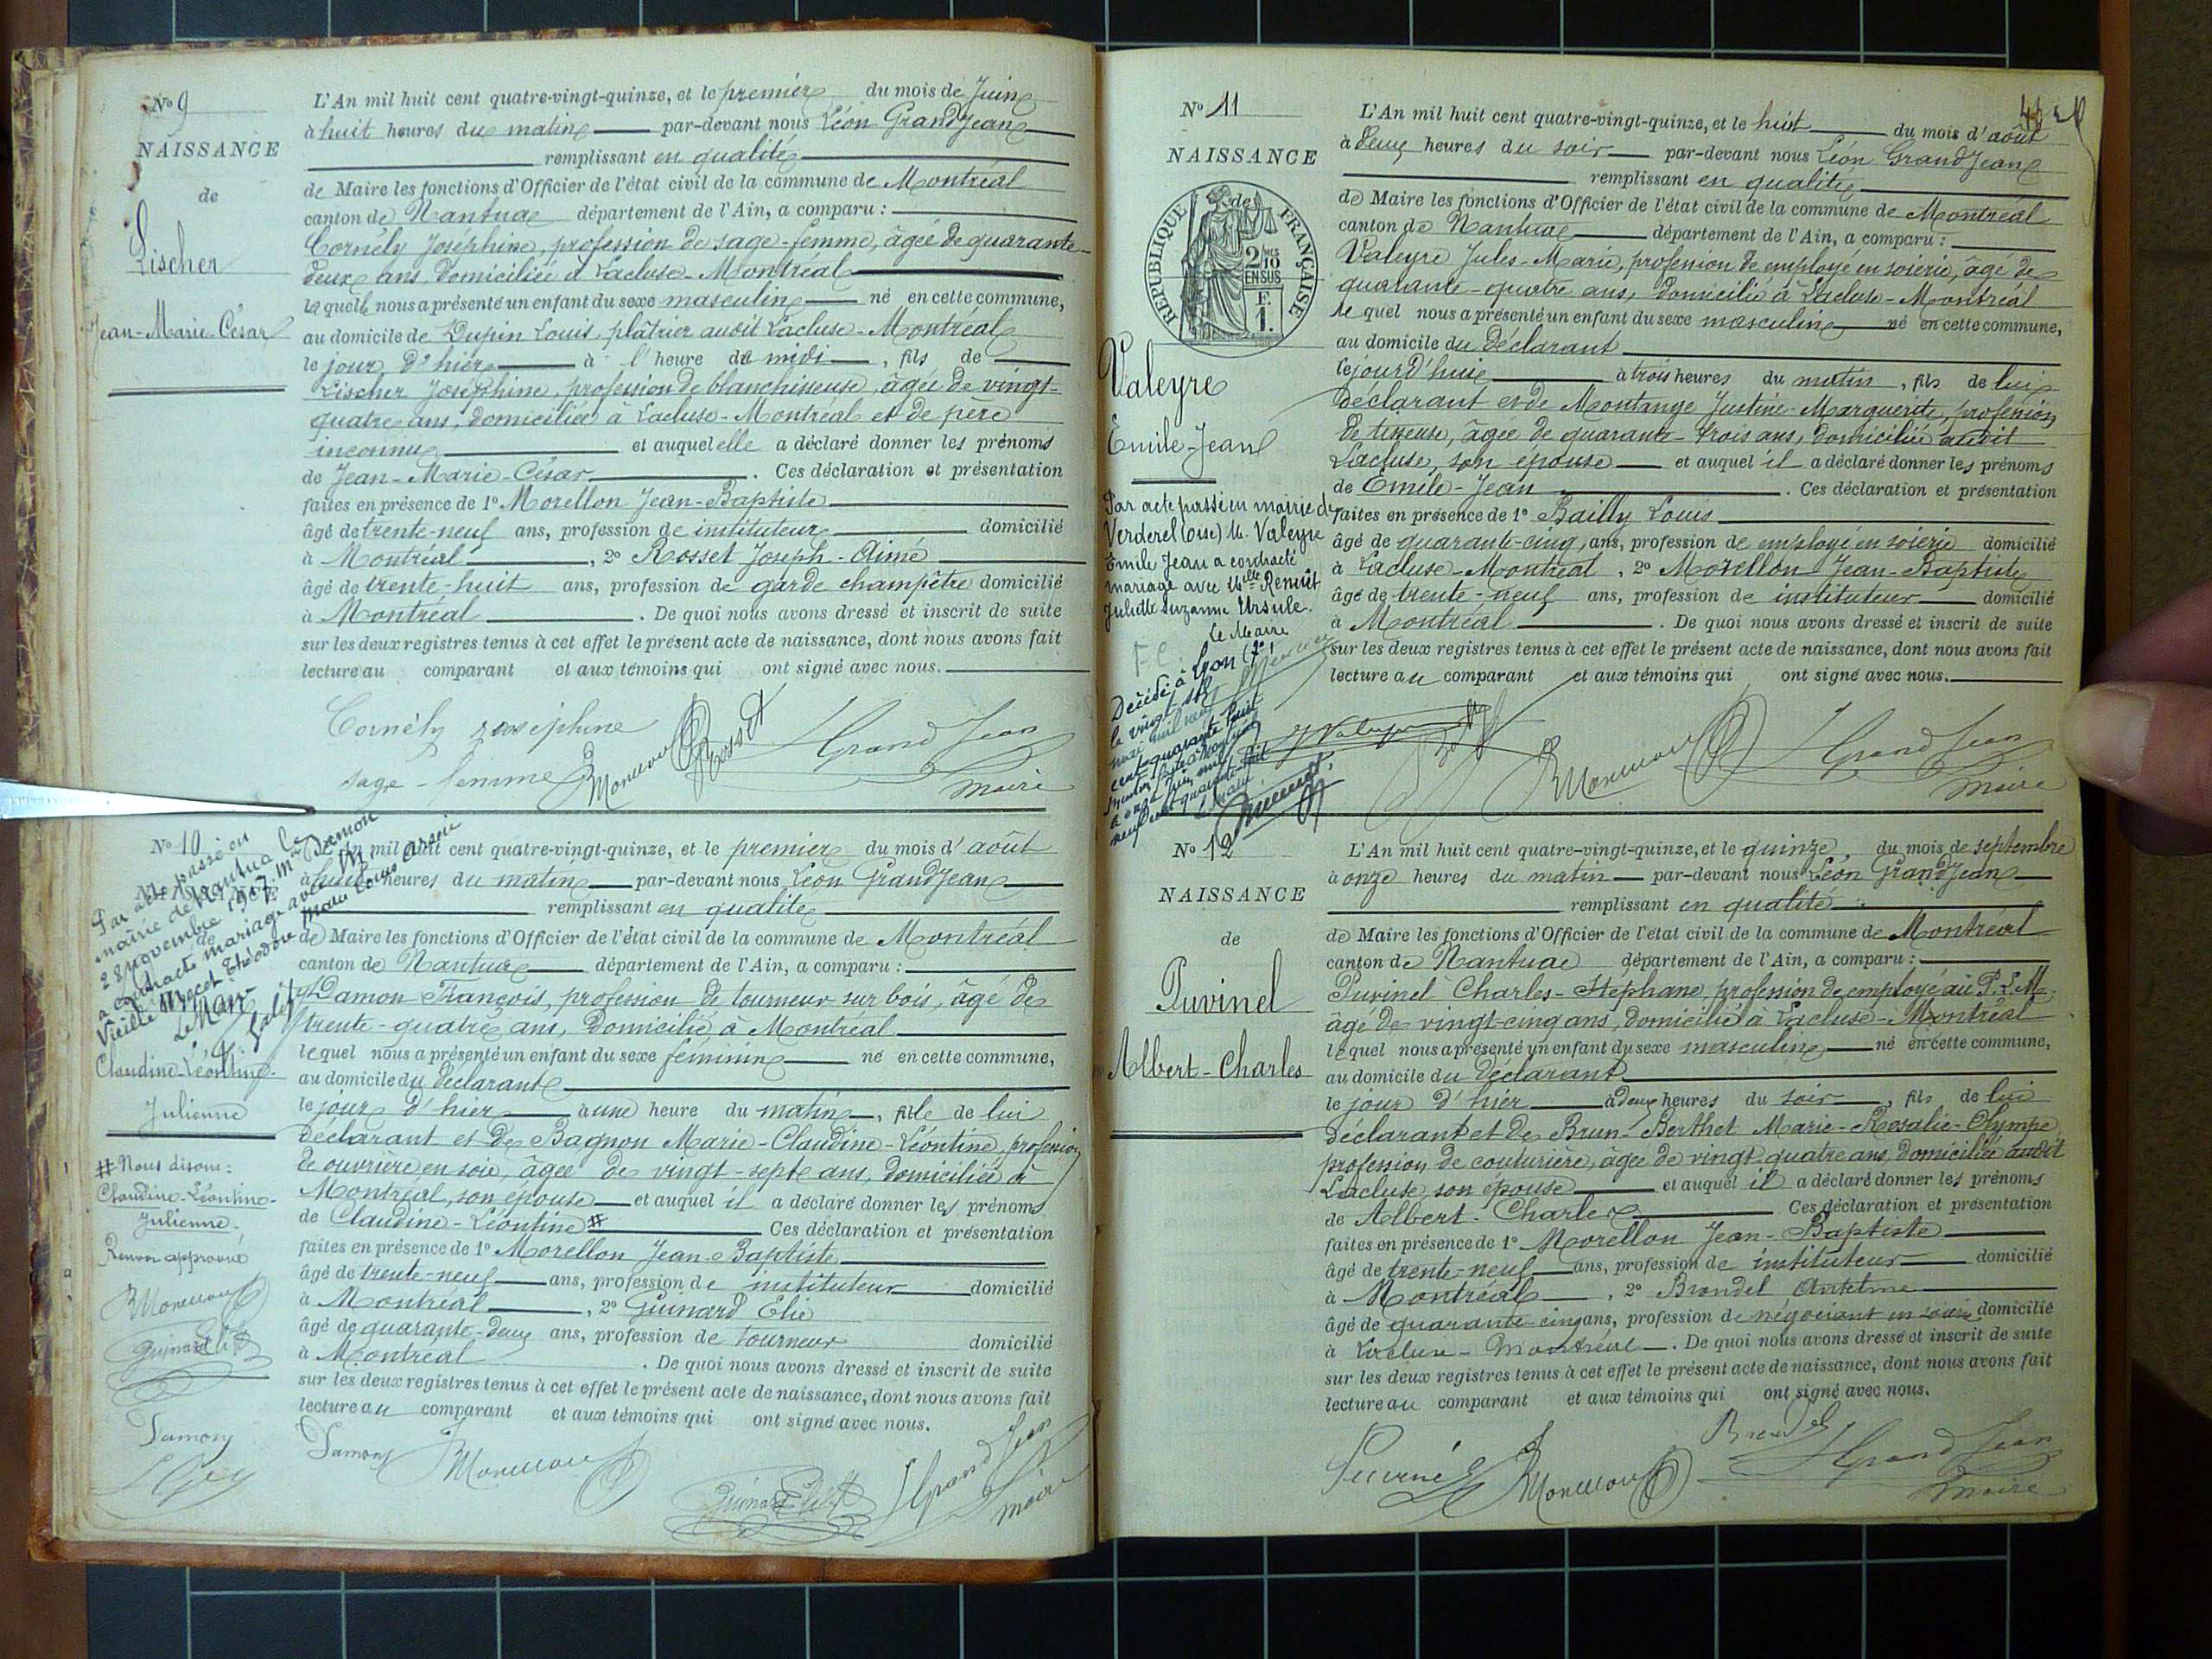 No 9
NAISSANCE
de
Lischer
Jean-Marie-César
L'An mil huit cent quatre-vingt-quinze, et le premier du mois de Juin
à huit heures du matin par-devant nous Léon Grandjean
remplissant en qualité
de Maire les fonctions d'Officier de l'état civil de la commune de Montréal
canton de Nantua département de l'Ain, a comparu :
Cornély Joséphine, profession de sage-femme, âgée de quarante-
deux ans, domiciliée à Lacluse-Montréal
laquelle nous a présenté un enfant du sexe masculin né en cette commune,
au domicile de Dupin Louis, plâtrier audit Lacluse-Montréal
le jour d'hier à l'heure de midi, fils de
Lischer Joséphine, profession de blanchisseuse, âgée de vingt-
quatre ans, domiciliée à Lacluse-Montréal et de père
inconnu et auquel elle a déclaré donner les prénoms
de Jean-Marie-César. Ces déclaration et présentation
faites en présence de 1º Morellon Jean-Baptiste
âgé de trente-neuf ans, profession de instituteur domicilié
à Montréal, 2º Rosset Joseph-Aimé
âgé de trente-huit ans, profession de garde champêtre domicilié
à Montréal. De quoi nous avons dressé et inscrit de suite
sur les deux registres tenus à cet effet le présent acte de naissance, dont nous avons fait
lecture au comparant et aux témoins qui ont signé avec nous.
Cornély Joséphine
sage-femme
Morellon
Rosset
Grandjean
maire
No 10
NAISSANCE
de
Par acte passé en
mairie de Nantua le
28 novembre 1917 Mlle Damon
a contracté mariage avec M.
Vieille Théodore Marie Louis Arsène
Le Maire
Claudine-Léontine-
Julienne
# Nous disons :
Claudine-Léontine-
Julienne.
Renvoi approuvé
Morellon
Guinard Elie
Damon
L'An mil huit cent quatre-vingt-quinze, et le premier du mois d'août
à huit heures du matin par-devant nous Léon Grandjean
remplissant en qualité
de Maire les fonctions d'Officier de l'état civil de la commune de Montréal
canton de Nantua département de l'Ain, a comparu :
Damon François, profession de tourneur sur bois, âgé de
trente-quatre ans, domicilié à Montréal
lequel nous a présenté un enfant du sexe féminin né en cette commune,
au domicile du déclarant
le jour d'hier à une heure du matin, fille de lui
déclarant et de Bagnon Marie-Claudine-Léontine, profession
de ouvrière en soie, âgée de vingt-sept ans, domiciliée à
Montréal, son épouse et auquel il a déclaré donner les prénoms
de Claudine-Léontine # Ces déclaration et présentation
faites en présence de 1º Morellon Jean-Baptiste
âgé de trente-neuf ans, profession de instituteur domicilié
à Montréal, 2º Guinard Elie
âgé de quarante-deux ans, profession de tourneur domicilié
à Montréal. De quoi nous avons dressé et inscrit de suite
sur les deux registres tenus à cet effet le présent acte de naissance, dont nous avons fait
lecture au comparant et aux témoins qui ont signé avec nous.
Damon
Morellon
Guinard Elie
Grandjean
maire
No 11
NAISSANCE
de
REPUBLIQUE FRANÇAISE
2/10 MES
EN SUS
F.
1.
Valeyre
Emile-Jean
Par acte passé en mairie de
Verderel (Oise) M. Valeyre
Emile Jean a contracté
mariage avec Mlle Renoult
Juliette Suzanne Ursule.
Le Maire
Décédé à Lyon
L'An mil huit cent quatre-vingt-quinze, et le huit du mois d'août
à deux heures du soir par-devant nous Léon Grandjean
remplissant en qualité
de Maire les fonctions d'Officier de l'état civil de la commune de Montréal
canton de Nantua département de l'Ain, a comparu :
Valeyre Jules-Marie, profession de employé en soierie, âgé de
quarante-quatre ans, domicilié à Lacluse-Montréal
lequel nous a présenté un enfant du sexe masculin né en cette commune,
au domicile du déclarant
cejourd'hui à trois heures du matin, fils de lui
déclarant et de Montange Justine-Marguerite, profession
de tisseuse, âgée de quarante-trois ans, domiciliée audit
Lacluse, son épouse et auquel il a déclaré donner les prénoms
de Emile-Jean. Ces déclaration et présentation
faites en présence de 1º Bailly Louis
âgé de quarante-cinq, ans, profession de employé en soierie domicilié
à Lacluse-Montréal, 2º Morellon Jean-Baptiste
âgé de trente-neuf ans, profession de instituteur domicilié
à Montréal. De quoi nous avons dressé et inscrit de suite
sur les deux registres tenus à cet effet le présent acte de naissance, dont nous avons fait
lecture au comparant et aux témoins qui ont signé avec nous.
J Valeyre
Morellon
Grandjean
maire
No 12
NAISSANCE
de
Puvinel
Albert-Charles
L'An mil huit cent quatre-vingt-quinze, et le quinze du mois de septembre
à onze heures du matin par-devant nous Léon Grandjean
remplissant en qualité
de Maire les fonctions d'Officier de l'état civil de la commune de Montréal
canton de Nantua département de l'Ain, a comparu :
Puvinel Charles-Stéphane, profession de employé au P.L.M.
âgé de vingt-cinq ans, domicilié à Lacluse-Montréal
lequel nous a présenté un enfant du sexe masculin né en cette commune,
au domicile du déclarant
le jour d'hier à deux heures du soir, fils de lui
déclarant et de Brun-Berthet Marie-Rosalie-Olympe
profession de couturière, âgée de vingt-quatre ans, domiciliée audit
Lacluse, son épouse et auquel il a déclaré donner les prénoms
de Albert-Charles. Ces déclaration et présentation
faites en présence de 1º Morellon Jean-Baptiste
âgé de trente-neuf ans, profession de instituteur domicilié
à Montréal, 2º Brondel Anthelme
âgé de quarante-cinq ans, profession de négociant en soierie domicilié
à Lacluse-Montréal. De quoi nous avons dressé et inscrit de suite
sur les deux registres tenus à cet effet le présent acte de naissance, dont nous avons fait
lecture au comparant et aux témoins qui ont signé avec nous.
Puvinel
Morellon
Brondel
Grandjean
maire